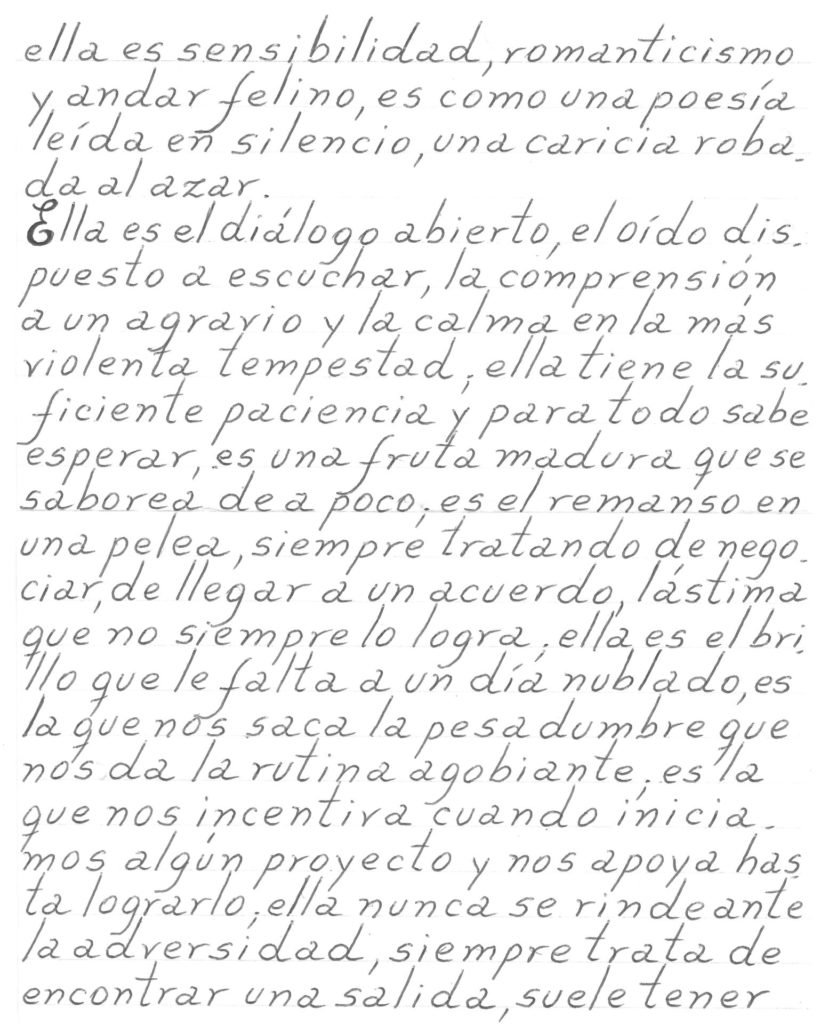 ella es sensibilidad, romanticismo
y andar felino, es como una poesía
leída en silencio, una caricia roba-
da al azar.
Ella es el diálogo abierto, el oído dis-
puesto a escuchar, la comprensión
a un agravio y la calma en la más
violenta tempestad; ella tiene la su-
ficiente paciencia y para todo sabe
esperar, es una fruta madura que se
saborea de a poco; es el remanso en
una pelea, siempre tratando de nego-
ciar, de llegar a un acuerdo, lástima
que no siempre lo logra; ella es el bri-
llo que le falta a un día nublado, es
la que nos saca la pesadumbre que
nos da la rutina agobiante; es la
que nos incentiva cuando inicia-
mos algún proyecto y nos apoya has-
ta lograrlo; ella nunca se rinde ante
la adversidad, siempre trata de
encontrar una salida, suele tener